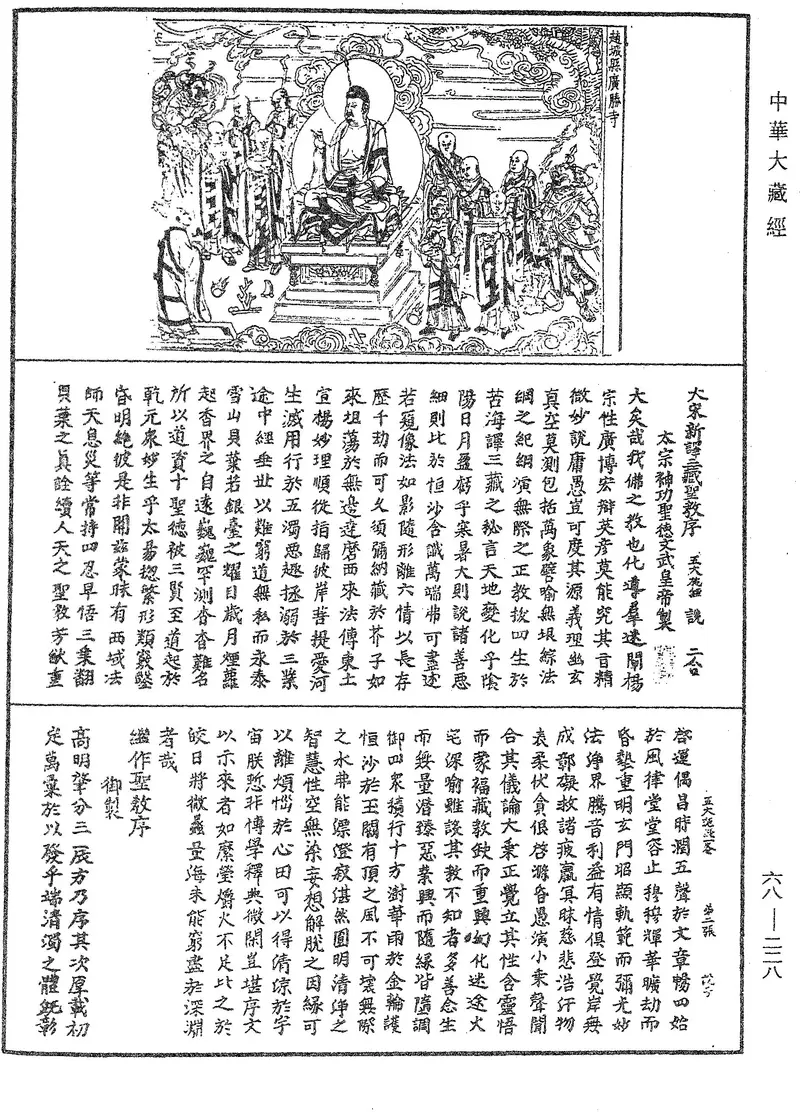 中華大藏經
趙城縣廣勝寺
大宋新譯三藏聖教序
太宗神功聖德文武皇帝製
大矣哉我佛之教也化導群迷闡揚
宗性廣博宏辯英彥莫能究其旨精
微妙說庸愚豈可度其源義理幽玄
真空莫測包括萬象譬喻無垠綜法
網之紀綱演無際之正教拔四生於
苦海譯三藏之秘言天地變化乎陰
陽日月盈虧乎寒暑大則說諸善惡
細則比於恒沙含識萬端弗可盡述
若窺像法如影隨形離六情以長存
歷千劫而可久須彌納藏於芥子如
來坦蕩於無邊達磨西來法傳東土
宣揚妙理順從指歸彼岸菩提愛河
生滅用行於五濁惡趣拯溺於三業
途中經垂世以難窮道無私而永泰
雪山貝葉若銀臺之耀日歲月煙蘿
起香界之自遠巍巍罕測杳杳難名
所以道資十聖德被三賢至道起於
乾元衆妙生乎太易揔繁形類竅鑿
昏明絶彼是非開茲蒙昧有西域法
師天息災等常持四忍早悟三乘翻
貝葉之真詮續人天之聖教芳猷重
啓運偶昌時潤五聲於文章暢四始
於風律堂堂容止穆穆輝華曠劫而
昏墊重明玄門昭顯軌範而彌光妙
法淨界騰音利益有情俱登覺岸無
成鄣礙救諸疲羸冥昧慈悲浩汗物
表柔伏貪佷啓滌昏愚演小乘聲聞
合其儀論大乘正覺立其性含靈悟
而蒙福藏教缺而重興幻化迷途火
宅深喻雖設其教不知者多善念生
而無量潛臻惡業興而隨緣皆墮調
御四衆積行十方澍華雨於金輪護
恒沙於玉闕有頂之風不可壞無際
之水弗能漂澄寂湛然圓明清淨之
智慧性空無染妄想解脫之因緣可
以離煩惱於心田可以得清涼於宇
宙朕慙非博學釋典微閑豈堪序文
以示來者如縻螢爝火不足比之於
皎日將微蠡量海未能窮盡於深淵
者哉
繼作聖教序
御製
高明肇分三辰方乃序其次厚載初
定萬彙於以發乎端清濁之體旣彰
六八—二二八